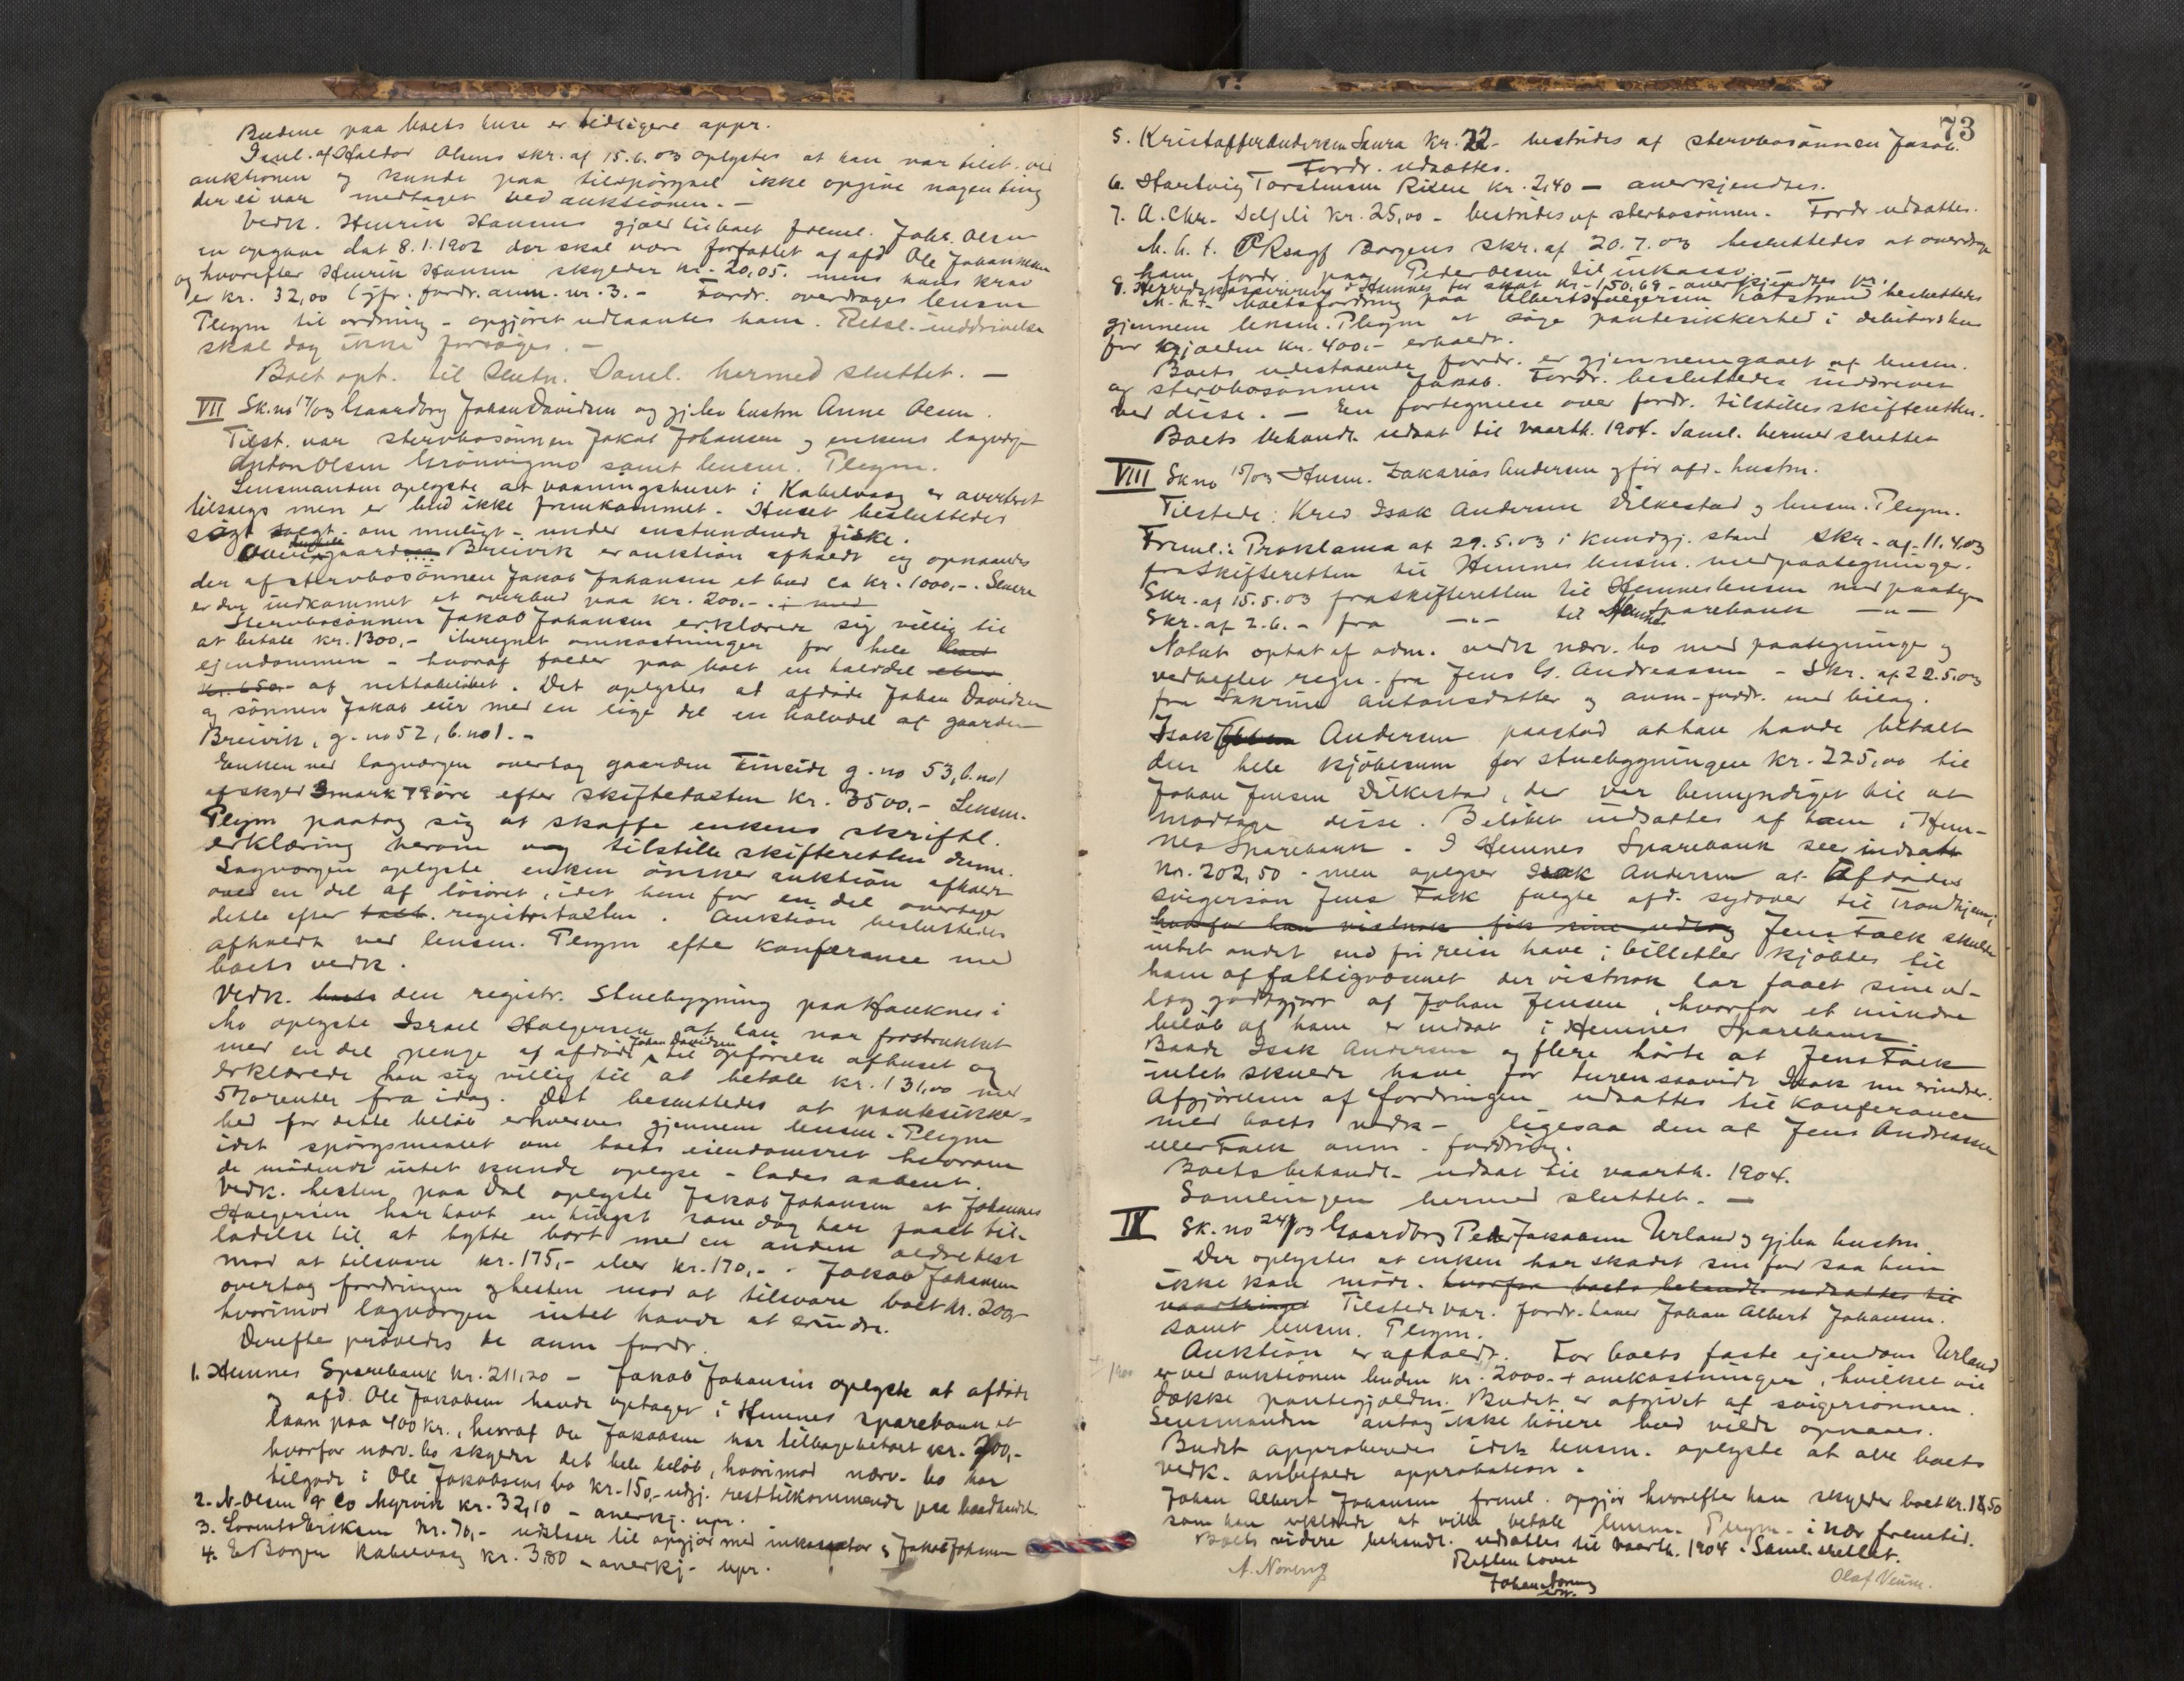 Budene paa boets huse er tidligere appr.
I anl. af Haldor Olsens skr. af 15.6.03 oplystes at han var tilst. ved
auktionen og kunde paa tilspörgsel ikke opgive nogen ting
der ei var medtaget ved auktionen. -
Vedk. Henrik Hansens gjæld til boet freml. Joh. Olsen
en opgave dat 8.1.1902 der skal være forfattet af afd Ole Johannesen
og hvorefter Henrik Hansen skylder kr. 20,05. mens hans krav
er kr. 32,00 (jfr. fordr. anm. nr. 3. - Fordr. overdrages lensm
Plegm til ordning - opgjöret udlaantes ham. Retsl. inddrivelse
skal dog ikke forsöges. -
Boet opt. til Slutn. Saml. hermed sluttet. -
VII Sk.no 17/03 Gaardbrg Johan Davidsen og gjlev hustru Anne Olsen.
Tilst. var stervbosönnen Jakob Johansen og enkens lagverge
Anton Olsen Grönvigmo samt lensm. Plegm.
Lensmanden oplyste at vaaningshuset i Kabelvaag er averteret
tilsalgs men er bud ikke fremkommet. Huset besluttedes
sögt solgt - om muligt - under instundende fiske.
Over gaarden Breivik er auktion afholdt og opnaaedes
der af stervbosönnen Jakob Johansen et bud ca kr. 1000,-. Senere
er der indkommet et overbud paa kr. 200.-. i med
Stervbosönnen Jakob Johansen erklærede sig villig til
at betale kr. 1300,- iberegnet omkostninger for hele boet
ejendommen - hvoraf falder paa boet en halvdel eller
kr. 650.- af nettobelöbet. Det oplystes at afdöde Johan Davidsen
og sönnen Jakob eier med en lige del en halvdel af gaarden
Breivik, g. no 52, b. no 1. -
Enken ved lagvergen overtog gaarden Fineide g. no 53, b. no 1
af skyld 3 mark 79 öre efter skiftetaxten kr. 3500.- Lensm.
Plegm paatog sig at skaffe enkens skriftl.
erklæring herom og tilstille skifteretten denne.
Lagvergen oplyste enken önsker auktion afholdt
over en del af lösöret, idet hun for en del overtager
dette efter taxt. registr. taxten. Auktion besluttedes
afholdt ved lensm. Plegm efter konferance med
boets vedk.
Vedk. boets den registr. Stuebygning paa Hauknes i
Mo oplyste Israel Holgersen at han var forstrukket
med en del penge af afdöde Johan Davidsen til opförelse af huset og
erklærede han sig villig til at betale kr. 131,00 med
5% renter fra idag. Det besluttedes at pantesikker-
hed for dette belöb erhverves gjennem lensm. Plegm
idet spörgsmaalet om boets eiendomsret hvorom
de mödende intet kunde oplyse - lades aabent.
Vedk. hesten paa Dal oplyste Jakob Johansen at Johannes
Holgersen har havt en hingst som dog har faaet til-
ladelse til at bytte bort med en anden ældre hest
mod at tilsvare kr. 175,- eller kr. 170,-. Jakob Johansen
overtog fordringen & hesten mod at tilsvare boet kr. 200,-
hvorimod lagvergen intet havde at erindre.
Derefter prövedes de anm fordr.
1. Hemnes Sparebank kr. 211,20 - Jakob Johansen oplyste at afdöde
og afd. Ole Jakobsen havde optaget i Hemnes Sparebank et
laan paa 400 kr., hvoraf Ole Jakobsen har tilbagebetalt kr. 200,-
hvorfor nærv. bo skylder det hele belöb, hvorimod nærv. bo har
tilgode i Ole Jakobsens bo kr. 150,- udgj. resttilkommende paa baadhandel.
2. N. Olsen & Co Myrvik kr. 32,10 - anerkj. upr.
3. Lorents Eriksen kr. 70,- udstaar til opgjör med inkassator & Jakob Johansen
4. E Borgen Kabelvaag kr. 3,80 - anerkj. upr.
73
5. Kristoffer Andersen Saura kr. 22.- bestrides af stervbosönnen Jakob.
Fordr. udsættes.
6. Hartvig Torstensen Risen kr. 2,40 - anerkjendtes.
7. A. Chr. Delfeli kr. 25,00 - bestrides af sterbosönnen. Fordr udsættes.
M. h. t. ORsagf Borgens skr. af 20.7.03 besluttedes at overdrage
ham fordr. paa Peder Olsen til inkasso. -
8. Herredskassereren i Hemnes for skat kr. 150.69 - anerkjendtes upr.
M. h. t. boets fordring paa Albert Holgersen Ratstrand besluttedes
gjennem lensm. Plegm at söge pantesikkerhed i debitors hus
for gjælden kr. 400.- erholdt.
Boets udestaaende fordr. er gjennemgaaet af lensm.
og stervbosönnen Jakob. Fordr. besluttedes inddrevet
ved disse. - En fortegnelse over fordr. tilstilles skifteretten.
Boets behandl. udsat til vaarth. 1904. Saml. hermed sluttet
VIII Sk no 15/03 Husm. Zakarias Andersen & för afd. hustru.
Tilstede: Kred Isak Andersen Vilkestad & lensm. Plegm.
Freml.: Proklama af 29.5.03 i kundgj. stand Skr. af 11.4.03
fra Skifteretten til Hemnes lensm. med paategninger.
Skr. af 15.5.03 fra skifteretten til Hemnes lensm med paategn
Skr. af 2.6. - fra -"- til Hemnes Sparebank -"-
Notat optat af adm. vedk nærv. bo med paategninge og
vedheftet regn. fra Jens G. Andreassen - Skr. af 22.5.03
fra Sakrine Antonsdatter og anm. fordr. med bilag.
Isak Andersen paastod at han havde betalt
den hele kjöbesum for stuebygningen kr. 225,00 til
Johan Jensen Vilkestad, der var bemyndiget til at
modtage disse. Belöbet indsattes af ham i Hem-
nes Sparebank. I Hemnes Sparebank sees indsatt
kr. 202,50 - men oplyser Isak Andersen at Afdödes
svigersön Jens Falk fulgte afd. sydover til Trondhjem,
hvorfor han vistnok fik sine udlæg Jens Falk skulde
intet andet end fri reise have; billetter kjöbtes til
ham af fattigvæsenet der vistnok har faaet sine ud-
læg godtgjort af Johan Jensen, hvorfor et mindre
belöb af ham er indsat i Hemnes Sparebank.
Baade Isak Andersen og flere hörte at Jens Falk
intet skulde have for turen saavidt Isak nu erindrer.
Afgjörelsen af fordringen udsattes til konferance
med boets vedk - ligesaa den af Jens Andreassen
eller Falk anm. fordring.
Boets behandl. udsat til vaarth. 1904.
Samlingen hermed sluttet. -
IX Sk. no 24/03 Gaardbrg Peder Jakobsen Urland & gjlev hustru
Der oplystes at enken har skadet sin fod saa hun
ikke kan möde. hvorfor boets behandl. udsattes til
vaarthinget Tilstede var. fordr.haver Johan Albert Johansen.
samt lensm. Plegm.
Auktion er afholdt. For boets faste ejendom Urland
er ved auktionen buden kr. 2000.- + omkostninger, hvilket vil
dække pantegjælden. Budet er afgivet af svigersönnen.
Lensmanden antog ikke höiere bud vilde opnaaes.
Budet approberedes idet lensm. oplyste at alle boets
vedk. anbefalede approbation.
Johan Albert Johansen freml. opgjör hvorefter han skylder boet kr. 18,50
som han erklærede at ville betale lensm. Plegm - i nær fremtid.
Boets videre behandl. udsattes til vaarth. 1904. Saml. sluttet.
Retten hævet
A. Norberg
Olaf Veum.